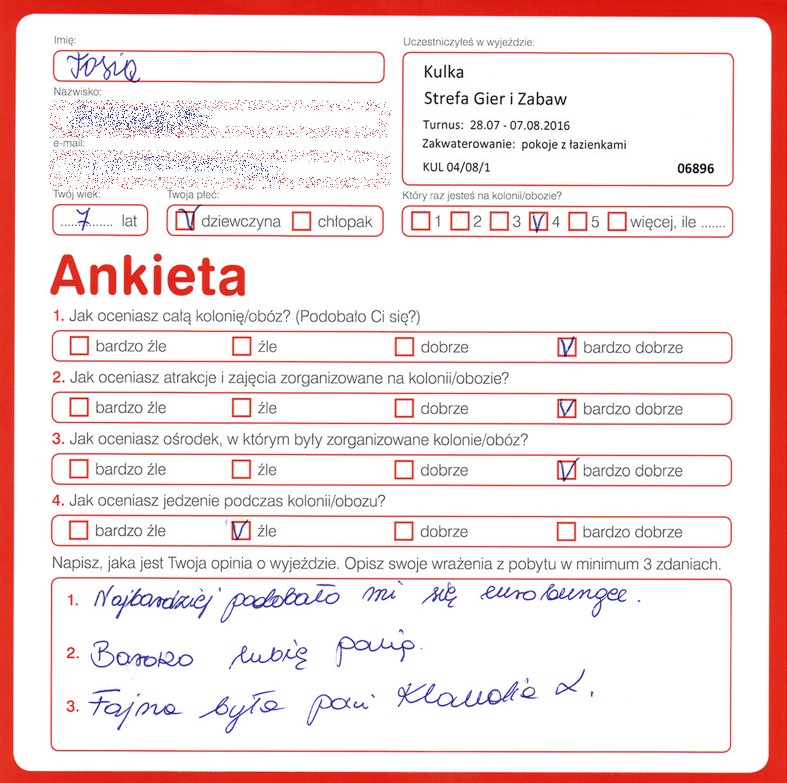 Imię:
Tosia
Nazwisko:
e-mail:
Twój wiek:
....7...... lat
Twoja płeć:
V dziewczyna chłopak
Uczestniczyłeś w wyjeździe:
Kulka
Strefa Gier i Zabaw
Turnus: 28.07 - 07.08.2016
Zakwaterowanie: pokoje z łazienkami
KUL 04/08/1 06896
Który raz jesteś na kolonii/obozie?
1 2 3 V 4 5 więcej, ile .......
Ankieta
1. Jak oceniasz całą kolonię/obóz? (Podobało Ci się?)
bardzo źle źle dobrze V bardzo dobrze
2. Jak oceniasz atrakcje i zajęcia zorganizowane na kolonii/obozie?
bardzo źle źle dobrze V bardzo dobrze
3. Jak oceniasz ośrodek, w którym były zorganizowane kolonie/obóz?
bardzo źle źle dobrze V bardzo dobrze
4. Jak oceniasz jedzenie podczas kolonii/obozu?
bardzo źle V źle dobrze bardzo dobrze
Napisz, jaka jest Twoja opinia o wyjeździe. Opisz swoje wrażenia z pobytu w minimum 3 zdaniach.
1. Najbardziej podobało mi się eurobungee.
2. Bardzo lubię
3. Fajna była pani Klaudia L.